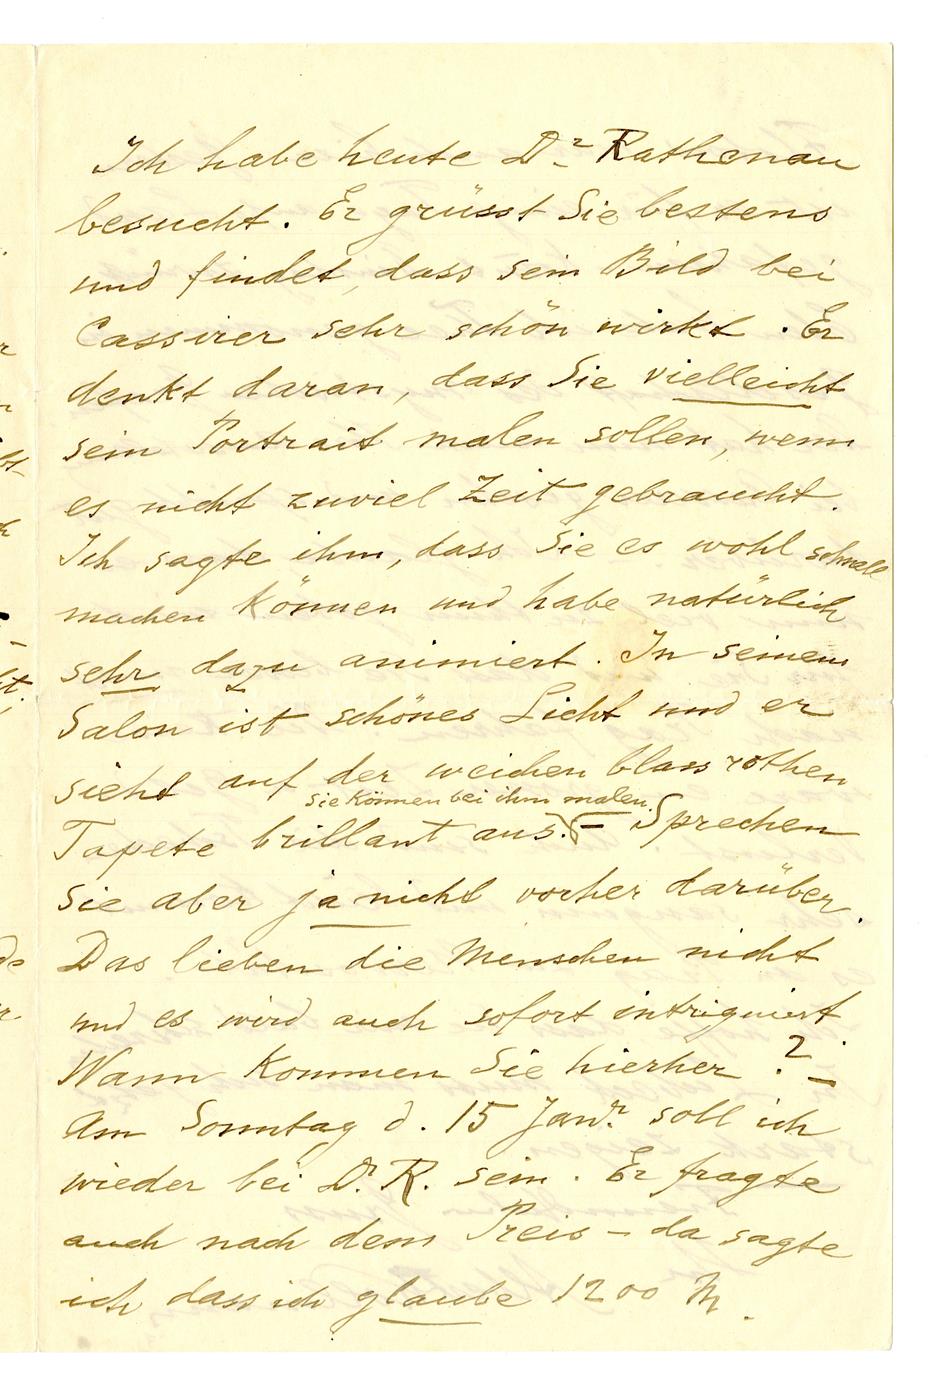 Ich habe heute Dr. Rathenau
besucht. Er grüsst Sie bestens
und findet, dass sein Bild bei
Cassirer sehr schön wirkt. Er
denkt daran, dass Sie vielleicht
sein Portrait malen sollen, wenn
es nicht zuviel Zeit gebraucht.
Ich sagte ihm, dass Sie es wohl schnell
machen können und habe natürlich
sehr dazu animiert. In seinem
Salon ist schönes Licht und er
sieht auf der weichen blassrothen
Sie können bei ihm malen.
Tapete brillant aus. – Sprechen
Sie aber ja nicht vorher darüber.
Das lieben die Menschen nicht
und es wird auch sofort intriguiert.
Wann kommen Sie hierher? –
Am Sonntag d. 15 Janr. soll ich
wieder bei Dr. R. sein. Er fragte
auch nach dem Preis – da sagte
ich dass ich glaube 1200 M.